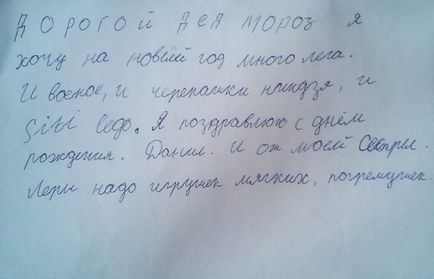 ДОРОГОЙ ДЕД МОРОЗ Я
хочу на новый год много лега.
И военое, и черепашки ниндзя, и
siti lego. Я поздравлюю с днём
рождения. Данил. И от моей Сёстры.
Леры надо игрушек мягких, погремушек.